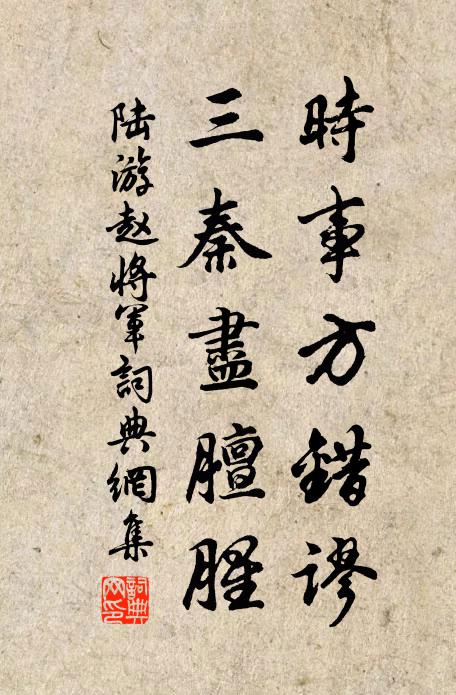 時事方錯謬
三秦盡膻腥
陸游赵将軍詞典網集
詞典
网印